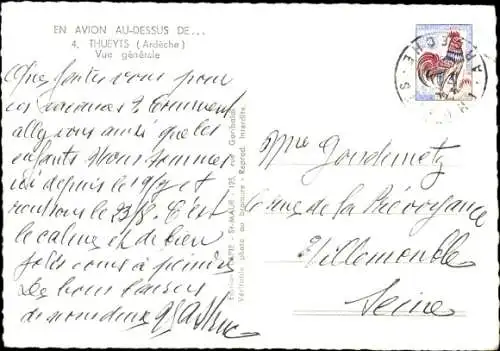 EN AVION AU-DESSUS DE...
4. THUEYTS (Ardèche)
Vue générale
Que faites vous pour
vos vacances ? Comment
allez vous ainsi que les
enfants Nous sommes
ici depuis le 19/7 et
rentrons le 23/8. C'est
le calme et de bien
jolis coins à
bons baisers
de nous deux
ST-MAUR - 195, rue Garibaldi
Véritable photo au bromure - Reprod. interdite
Mme Gondemetz
rue de la Prévoyance
Villemomble
Seine
ARDECHE